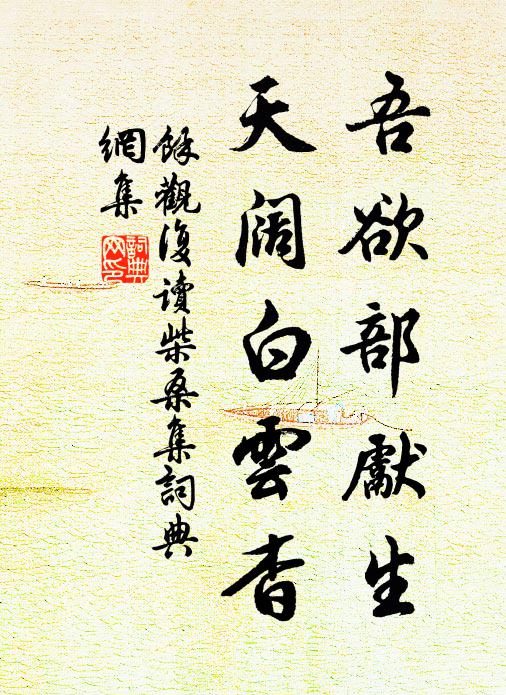 吾欲部獻生
天闊白雲杳
餘觀復讀柴桑集詞典
網集
詞典
网印